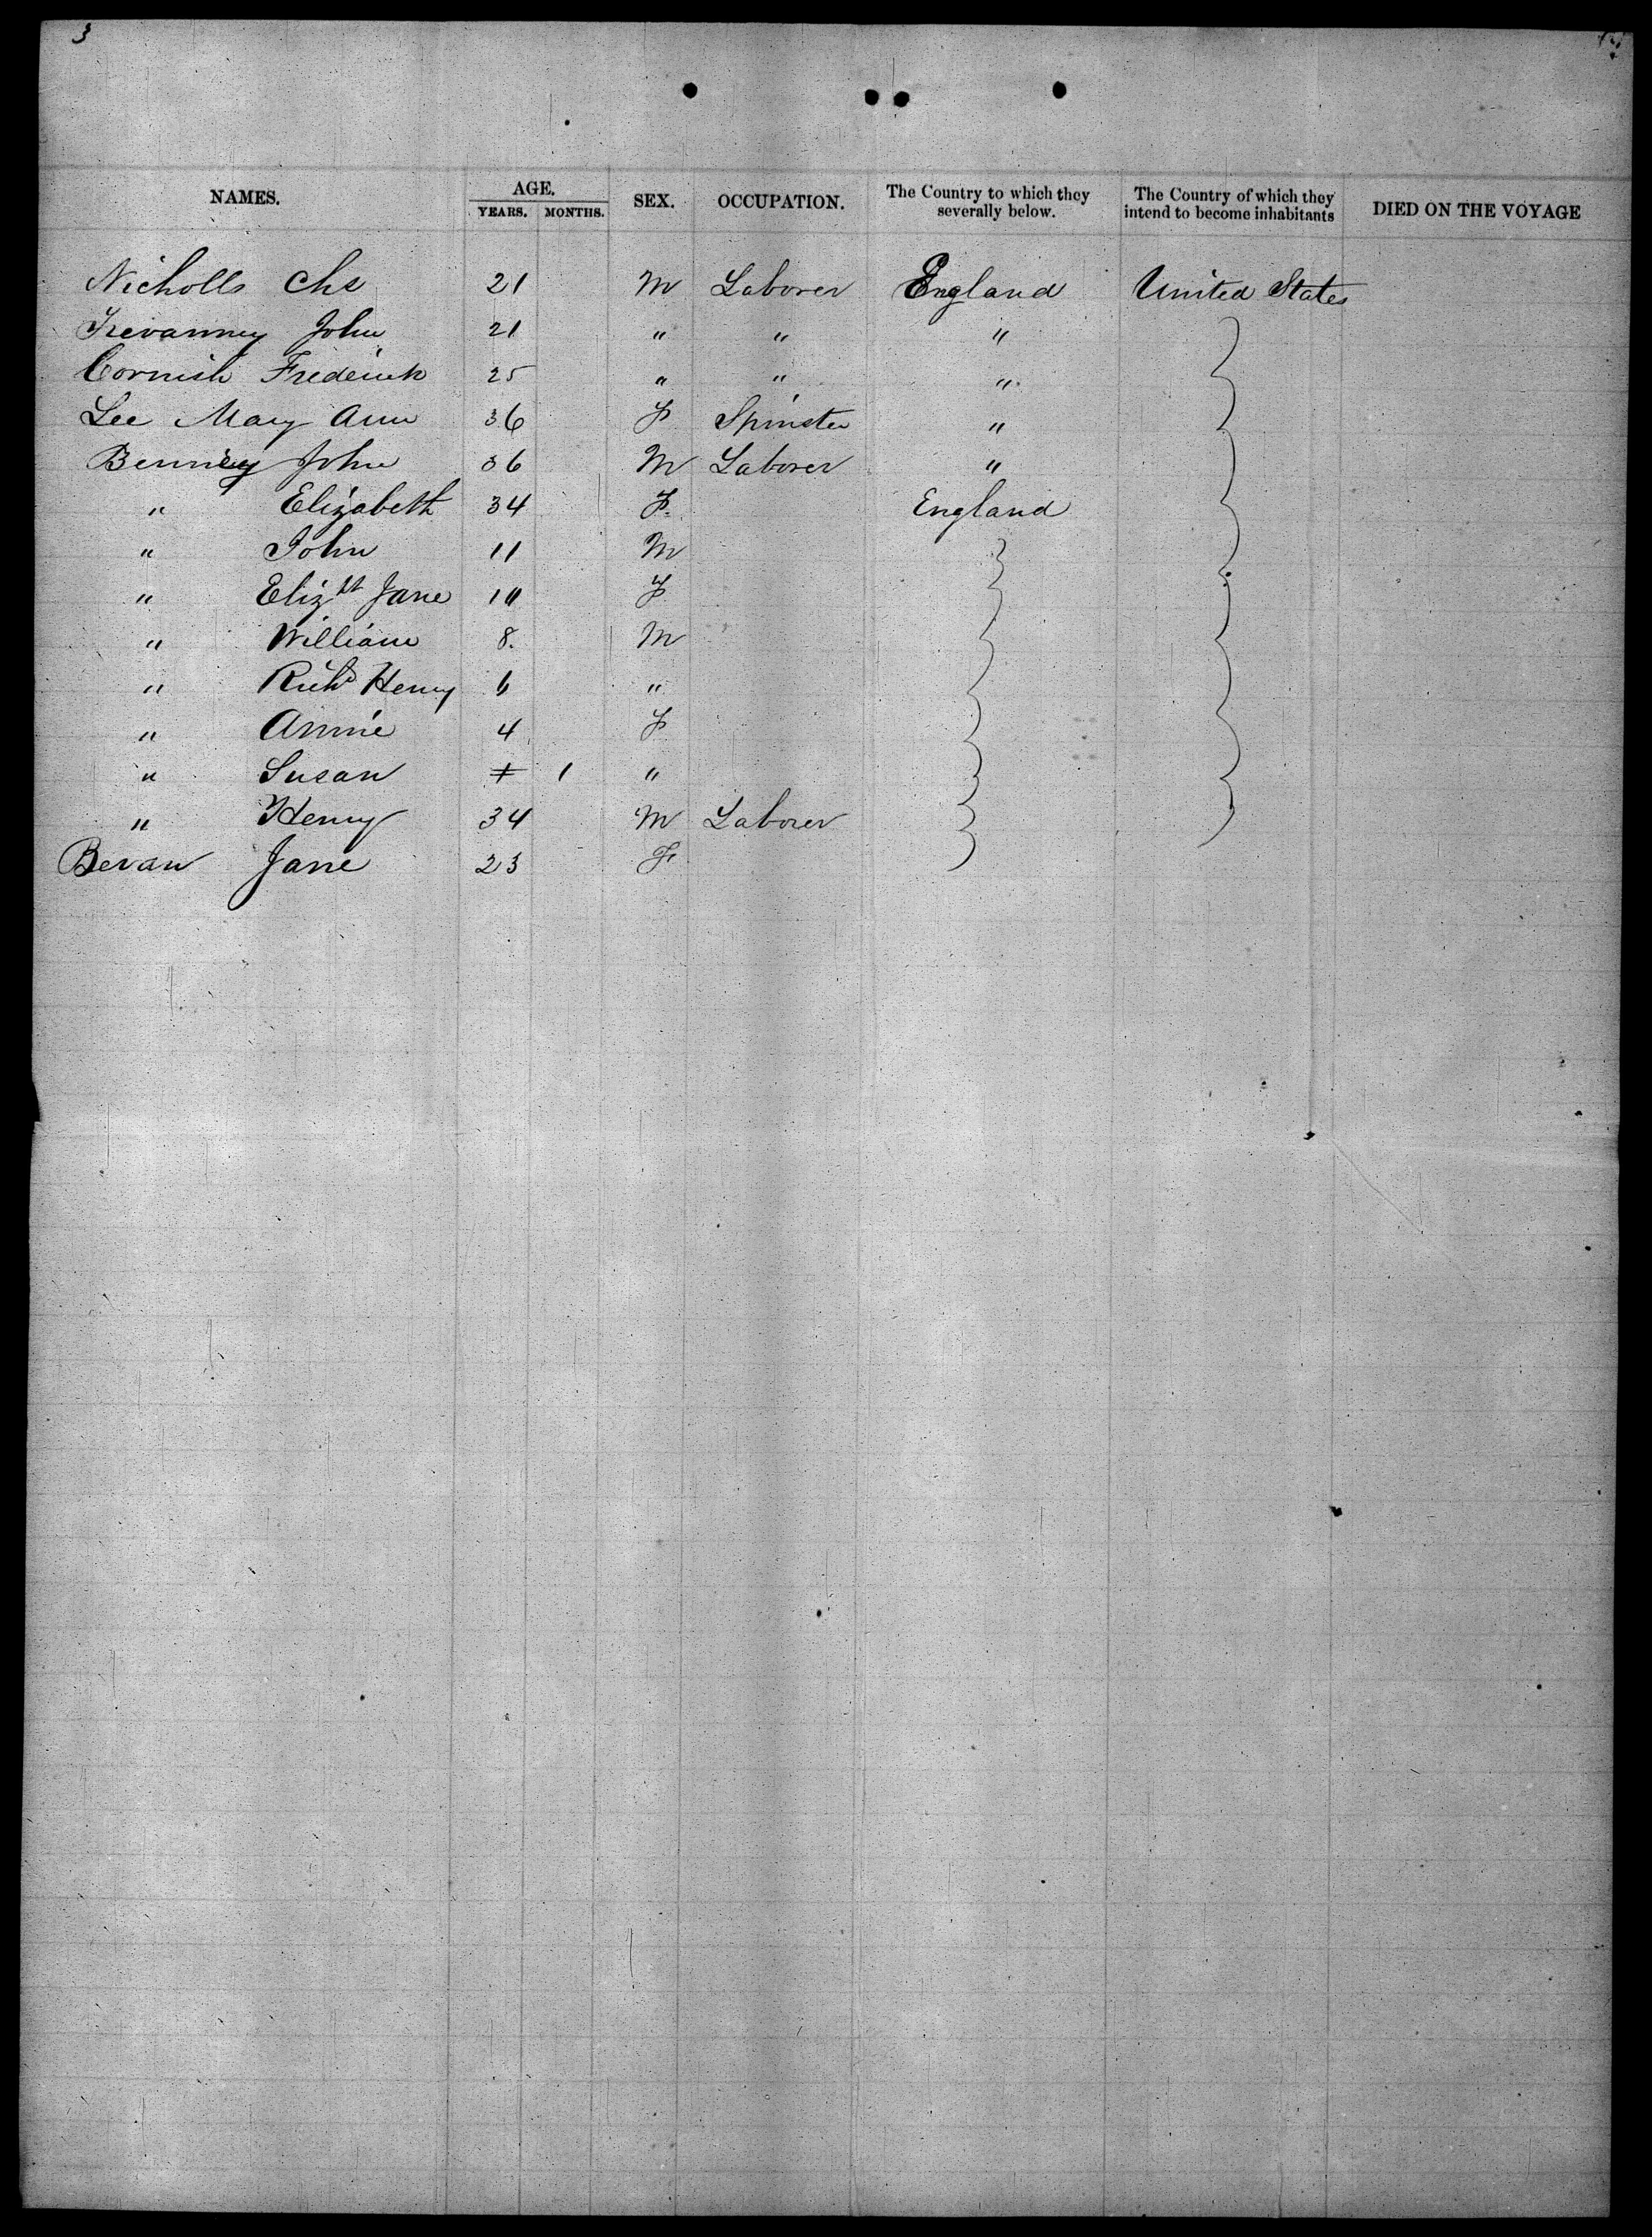 3
NAMES. AGE. YEARS. MONTHS. SEX. OCCUPATION. The Country to which they severally below. The Country of which they intend to become inhabitants DIED ON THE VOYAGE
Nicholls Chs 21 M Laborer England United States
Trevanney John 21 " " "
Cornish Frederick 25 " " "
Lee Mary Ann 36 F Spinster "
Benney John 36 M Laborer "
" Elizabeth 34 F. England
" John 11 M
" Elizth Jane 10 F
" William 8. M
" Richd Henry 6 "
" Annie 4 F
" Susan 1 "
" Henry 34 M Laborer
Bevan Jane 23 F.